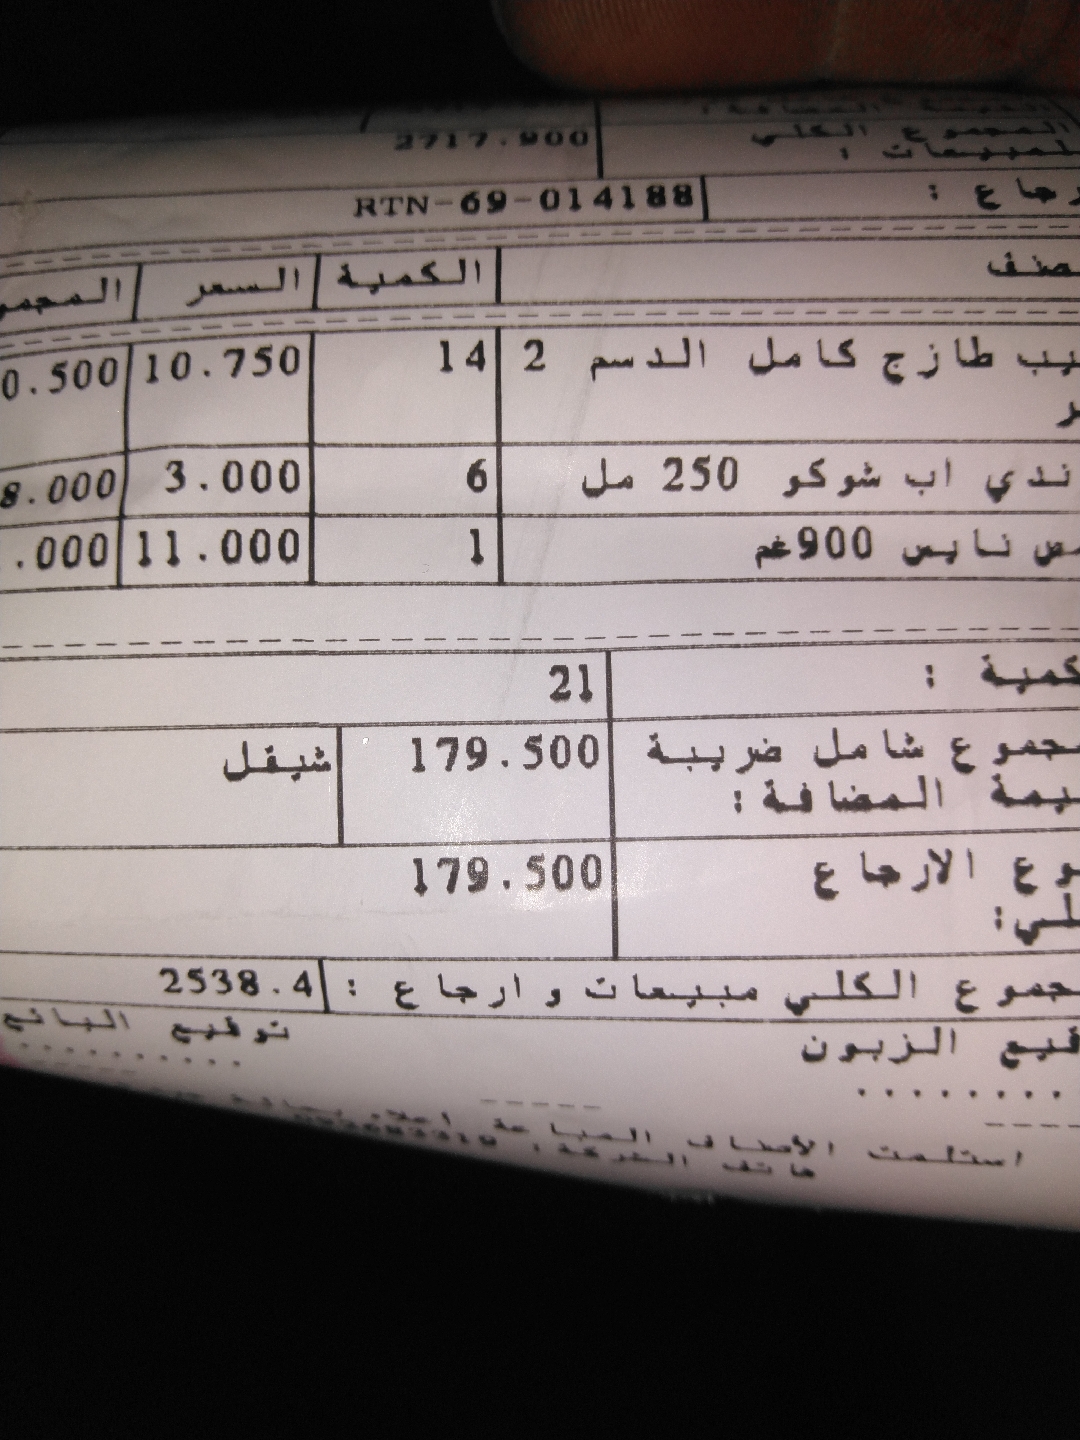 المجموع الكلي 2717.900
للمبيعات :
رجاع : RTN-69-014188
صنف الكمية السعر المجمو
يب طازج كامل الدسم 2 14 10.750 0.500
ر
ندي اب شوكو 250 مل 6 3.000 8.000
ص نايس 900غم 1 11.000 .000
كمية : 21
جموع شامل ضريبة 179.500 شيقل
يمة المضافة :
وع الارجاع 179.500
لي:
جموع الكلي مبيعات و ارجاع : 2538.4
قيع الزبون توقيع البائع
استلمت الأصناف المباعة اعلاه بحالة
هاتف الشركة :